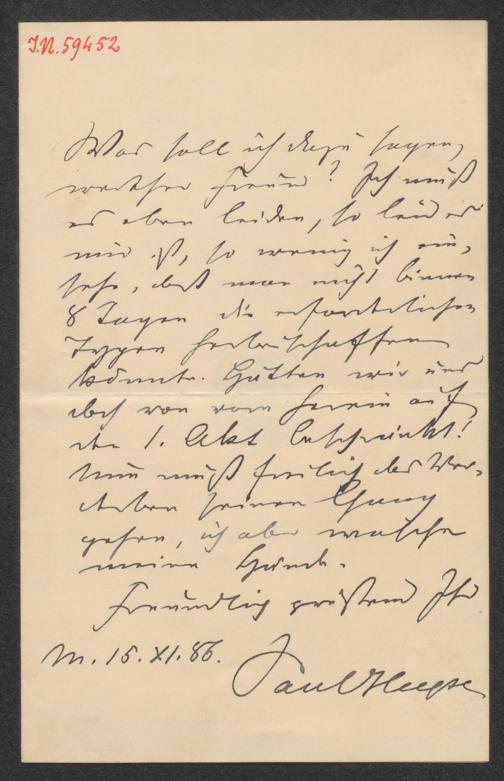 I.N. 59452
Was soll ich dazu sagen,
werther Freund? Ich muß
es eben leiden, so leid es
mir ist, so wenig ich ein-
sehe, daß man nicht binnen
8 Tagen die erforderlichen
Typen herbeischaffen
könnte. Hätten wir uns
doch von vorn herein auf
den 1. Akt beschränkt!
Nun muß freilich das Ver-
derben seinen Gang
gehen, ich aber wasche
meine Hände.
Freundlich grüßend Ihr
M. 15. XI. 86.
Paul Heyse